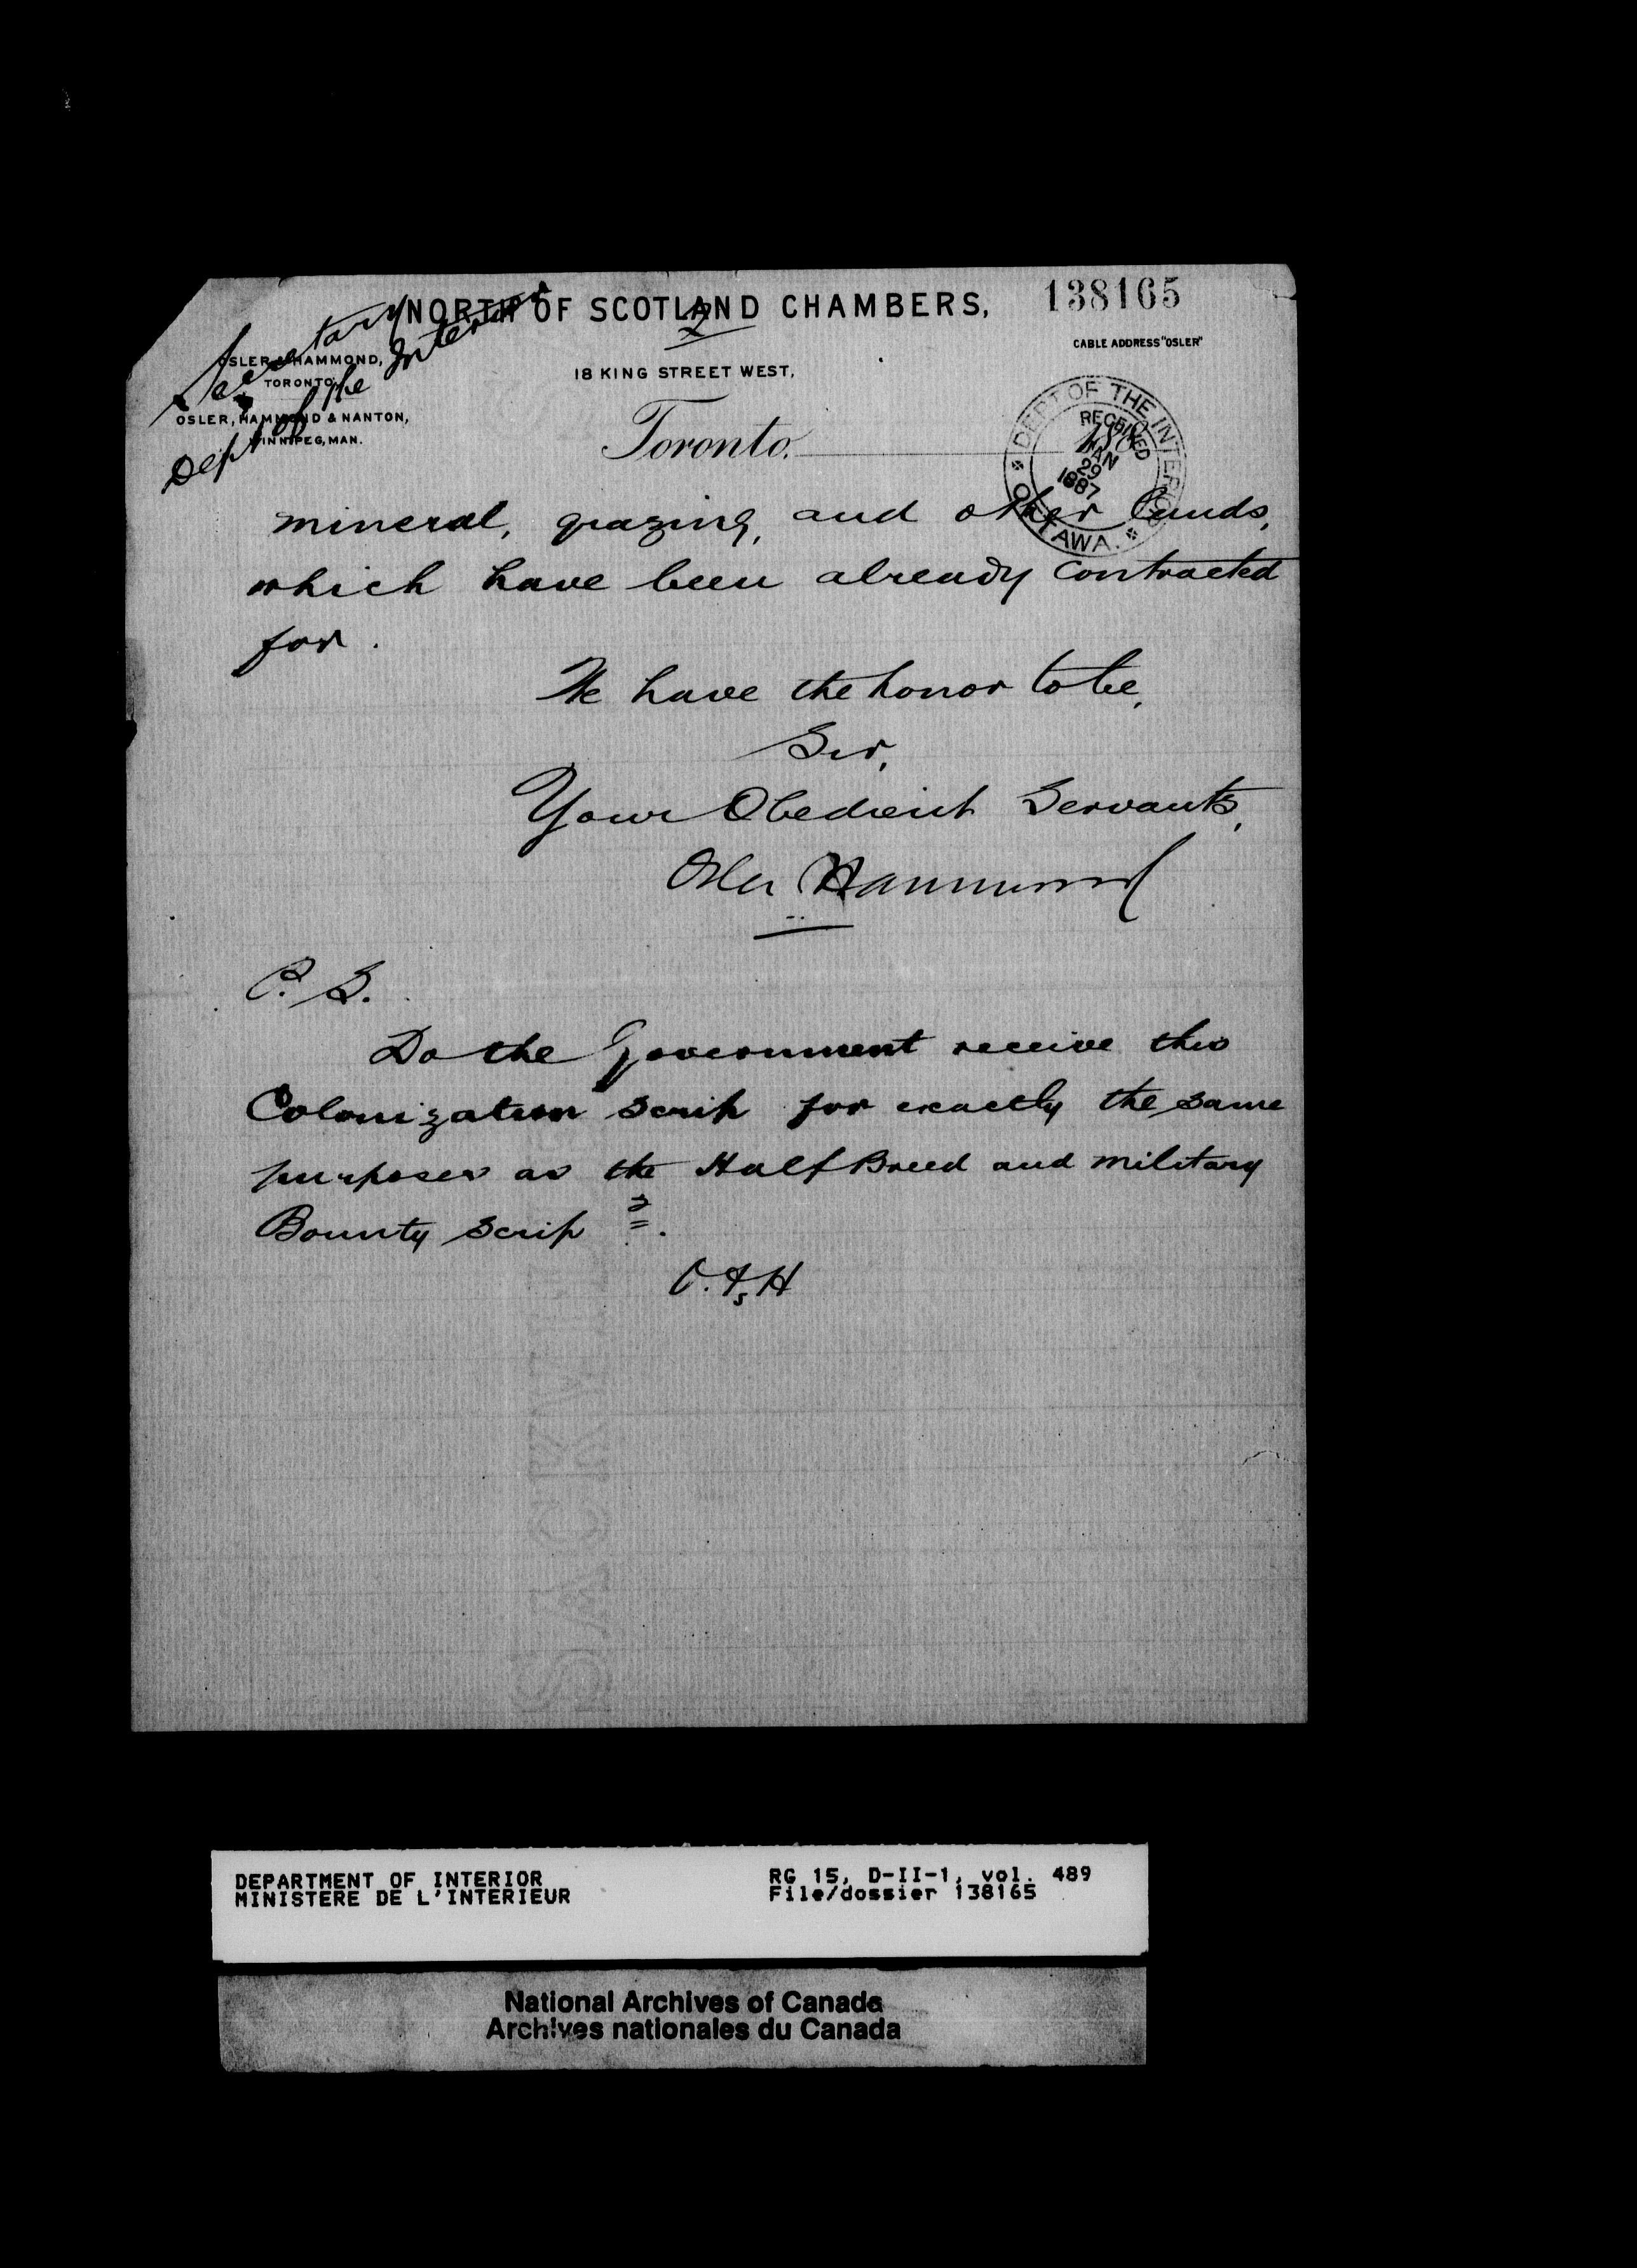 NORTH OF SCOTLAND CHAMBERS,
138165
2
CABLE ADDRESS "OSLER"
Secretary
Dept of the Interior
OSLER & HAMMOND,
TORONTO.
OSLER, HAMMOND & NANTON,
WINNIPEG, MAN.
18 KING STREET WEST,
Toronto,
DEPT OF THE INTERIOR
RECEIVED
JAN
29
1887
OTTAWA.
mineral, grazing, and other lands,
which have been already contracted
for.
We have the honor to be,
Sir,
Your Obedient Servants,
Osler Hammond
P. S.
Do the Government receive this
Colonization scrip for exactly the same
purposes as the Half Breed and military
Bounty scrip ?.
O. & H
SACKVILLE
DEPARTMENT OF INTERIOR
MINISTERE DE L'INTERIEUR
RG 15, D-II-1, vol. 489
File/dossier 138165
National Archives of Canada
Archives nationales du Canada